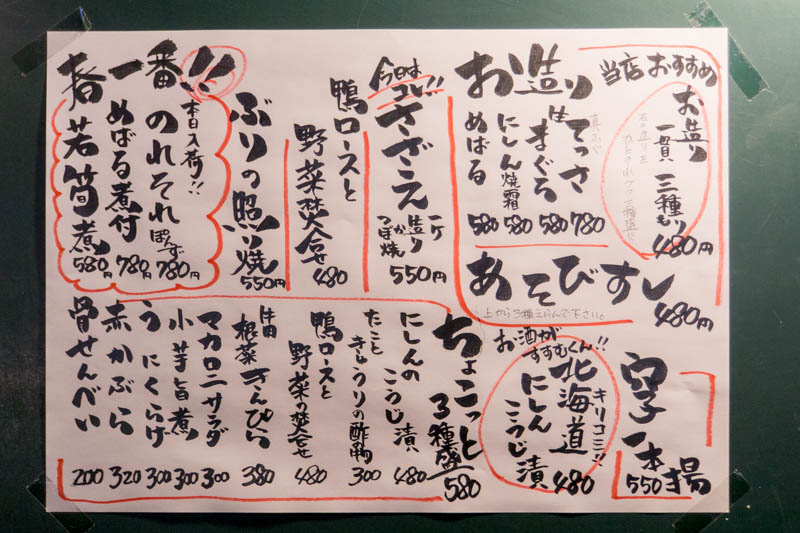 当店おすすめ
お造り
一貫 三種もり
480円
お造り
てっさ 780
真ふぐ
生まぐろ 580
にしん焼霜 580
めばる 580
あそびすし
480円
上から3種えらんで下さい。
今日はコレ!!
さざえ
一ケ
造り
か
つぼ焼
550円
鴨ロースと
野菜焚合せ
480
ぶりの照り焼
550円
春一番!!
本日入荷!!
のれそれ ぽんず 780円
めばる煮付 780円
若筍煮 580円
穴子一本揚
550
お酒がすすむくん!!
キリコミ
北海道
にしんこうじ漬
480
ちょこっと
3種盛
580
にしんのこうじ漬 480
たこときゅうりの酢物 300
鴨ロースと野菜の焚合せ 480
牛肉根菜きんぴら 380
マカロニサラダ 300
小芋旨煮 300
うにくらげ 300
赤かぶら 320
骨せんべい 200